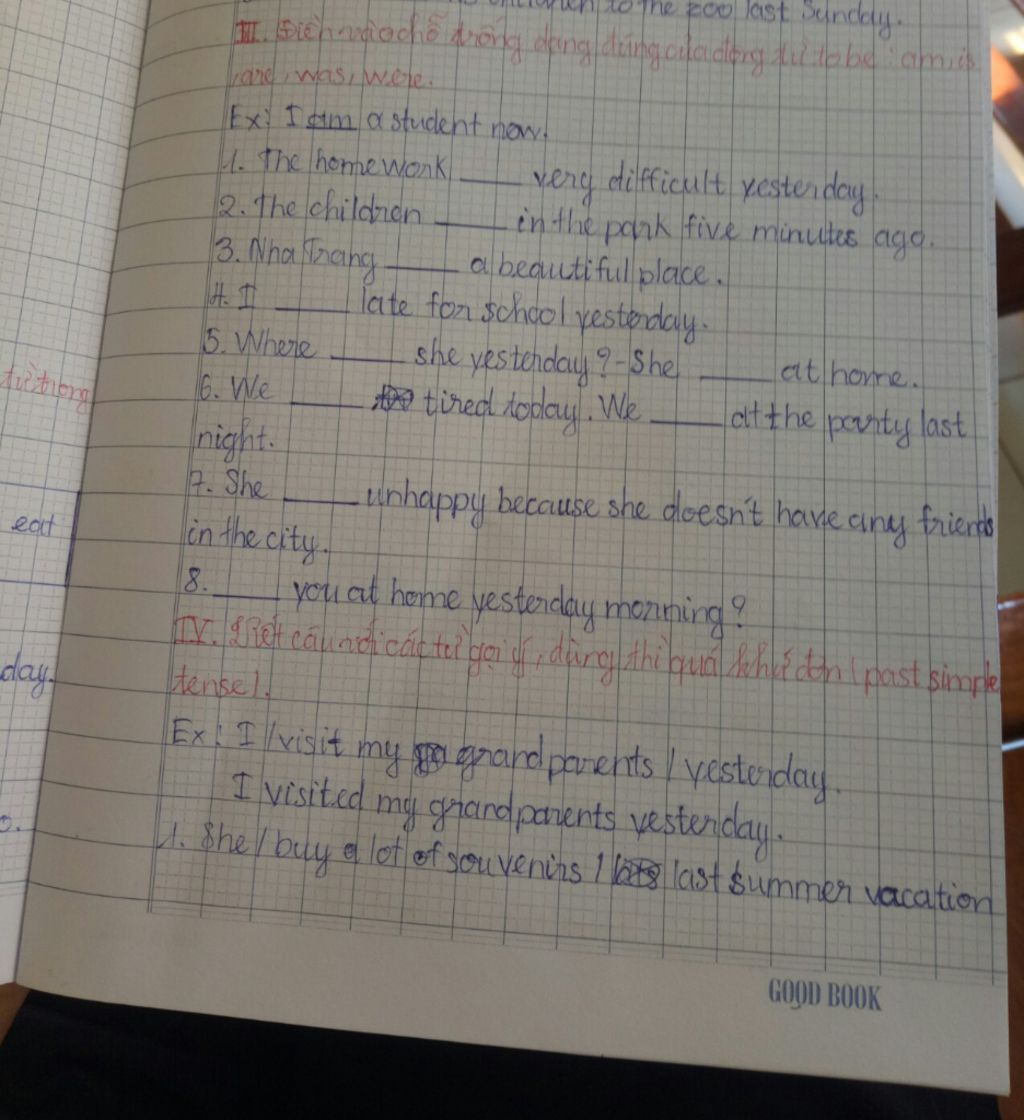 to the zoo last Sunday.
III. Điền vào chỗ trống dạng đúng của động từ to be: am, is
, are, was, were.
Ex: I am a student now.
1. The homework ____ very difficult yesterday.
2. The children ____ in the park five minutes ago.
3. Nha Trang ____ a beautiful place.
4. I ____ late for school yesterday.
5. Where ____ she yesterday? - She ____ at home.
6. We ____ tired today. We ____ at the party last
night.
7. She ____ unhappy because she doesn't have any friends
in the city.
8. ____ you at home yesterday morning?
IV. Viết câu với các từ gợi ý, dùng thì quá khứ đơn (past simple
tense).
Ex: I / visit my grandparents / yesterday.
I visited my grandparents yesterday.
1. She / buy a lot of souvenirs / last summer vacation
từ trong
eat
day.
GOOD BOOK